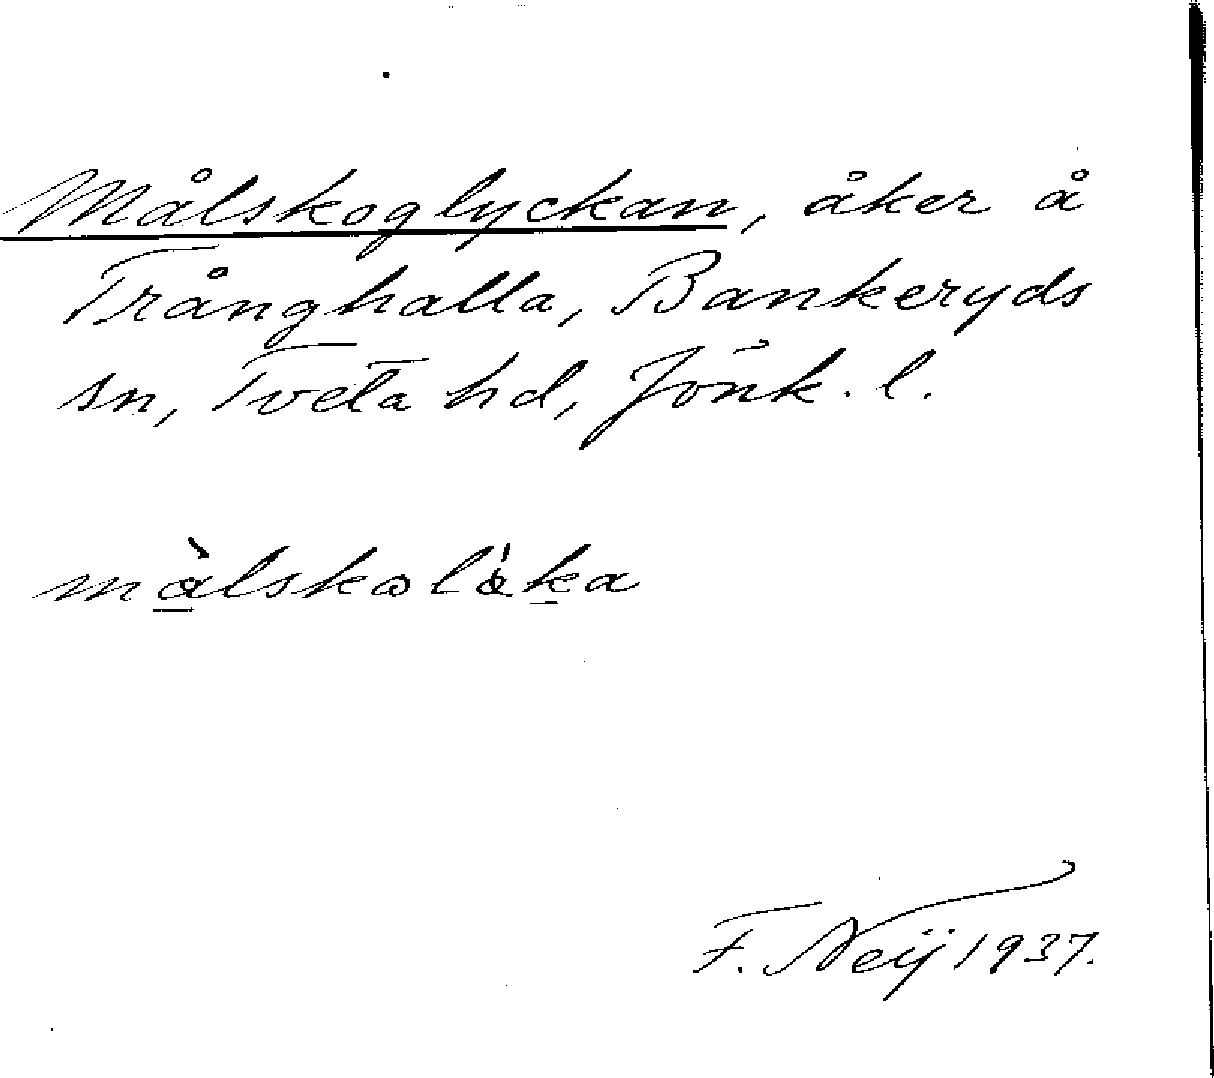 Målskoglyckan, åker å
Trånghalla, Bankeryds
sn, Tveta hd, Jönk. l.
F. Neij 1937.